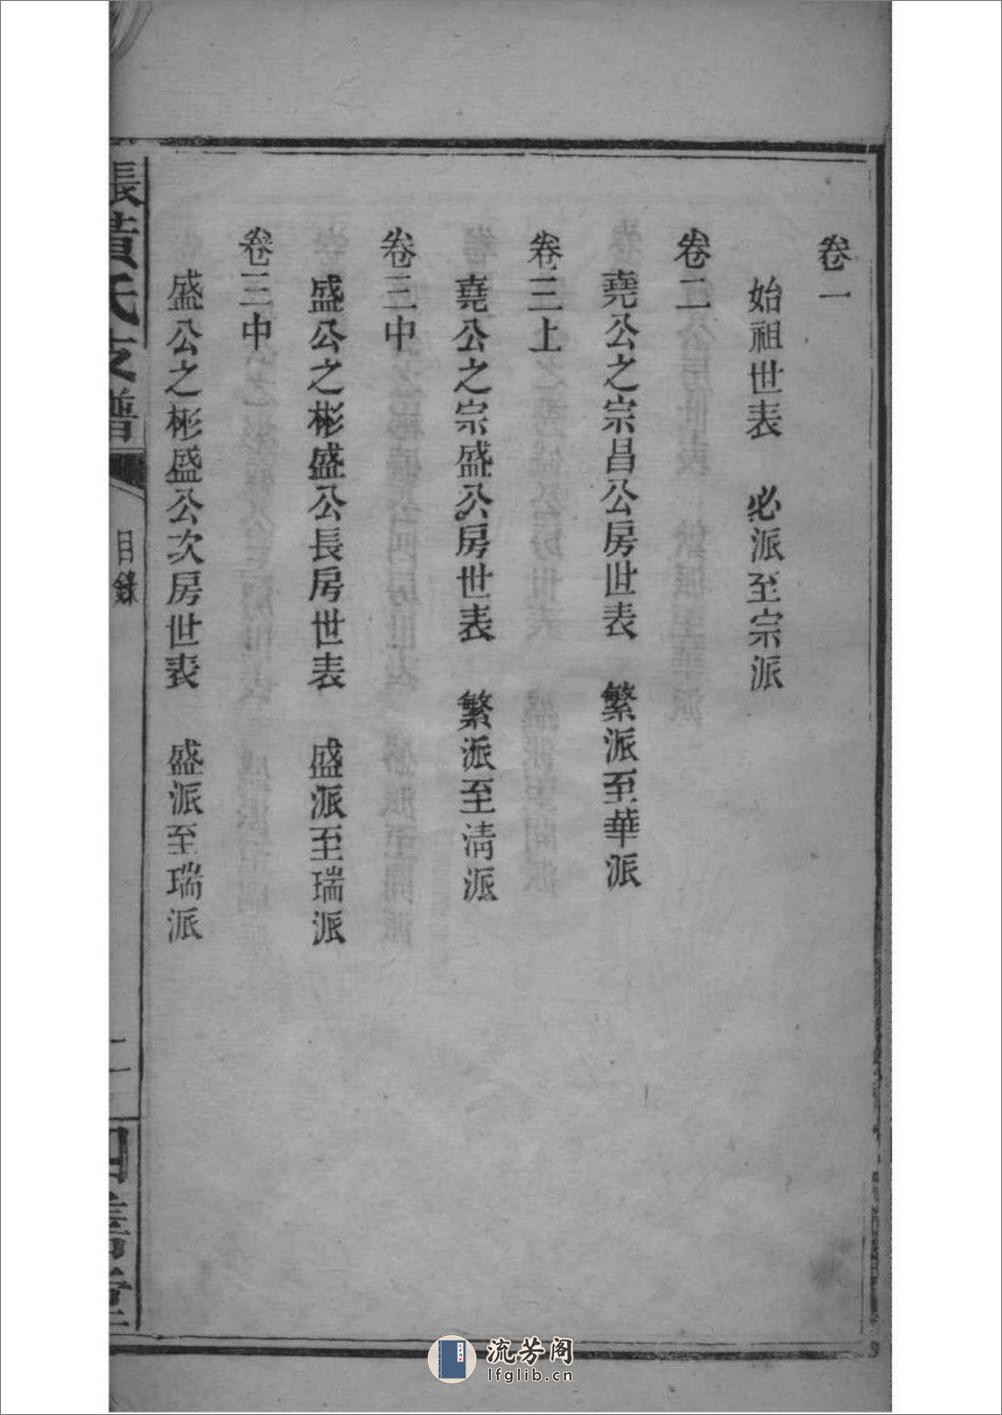 卷一
始祖世表　必派至宗派
卷二
堯公之宗昌公房世表　繁派至華派
卷三上
堯公之宗盛公房世表　繁派至清派
卷三中
盛公之彬盛公長房世表　盛派至瑞派
卷三中
盛公之彬盛公次房世表　盛派至瑞派
張黃氏支譜
目錄
二
堂
流芳阁
lfglib.cn